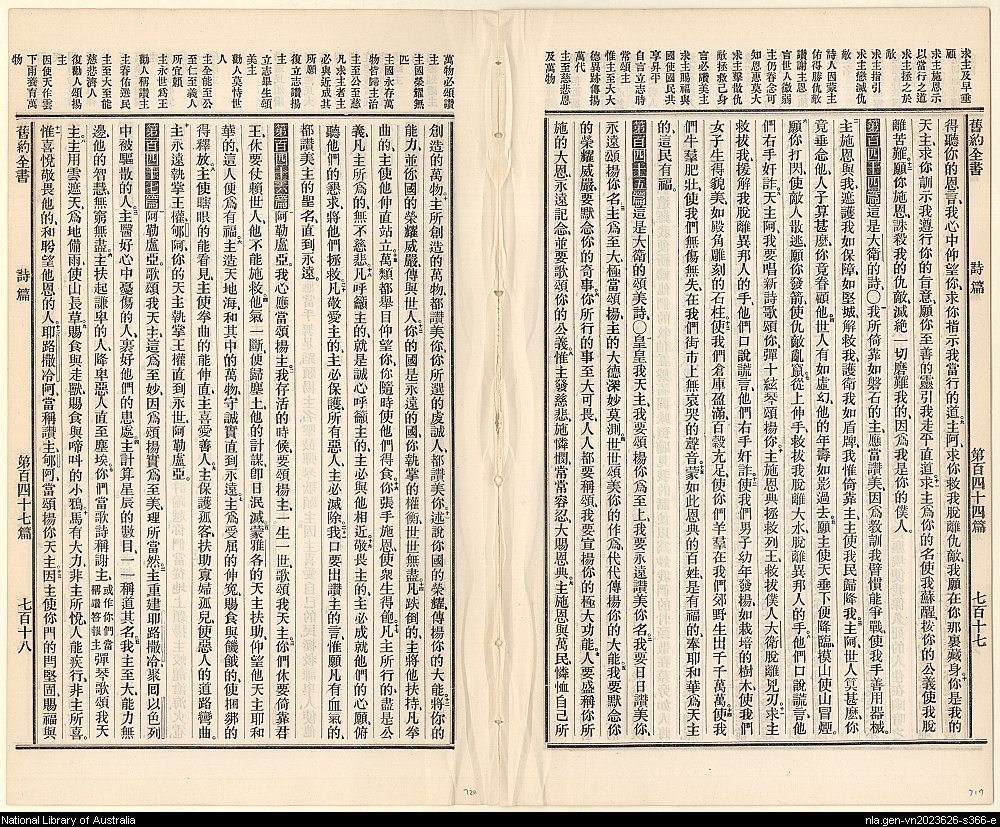 舊約全書
詩篇
第百四十四篇
七百十七
求主及早垂顧
求主施恩示以當行之道
求主拯之於敵
求主指引
求主懲滅仇敵
詩人因蒙主佑得勝仇敵讚謝主恩
言世人微弱主乃眷念可知恩惠莫大
求主擊散仇敵拯救己身
言必讚美主
求主賜福與國使國民共享昇平
自言立志時常頌主
惟主至大大德異跡傳揚萬代
主至慈悲恩及萬物
得聽你的恩言、我心中仰望你、求你指示我當行的道、主阿、求你救我脫離仇敵、我願在你那裏藏身、你是我的
天主、求你訓示我遵行你的旨意、願你至善的靈、引我走平直道、求主爲你的名、使我蘇醒、按你的公義、使我脫
離苦難、願你施恩、誅殺我的仇敵、滅絕一切磨難我的、因爲我是你的僕人。
第百四十四篇 這是大衛的詩〇我所倚靠如磐石的主、應當讚美、因爲教訓我臂慣能爭戰、使我手善用器械、
主施恩與我、遮護我如保障、如堅城、解救我、護衛我如盾牌、我惟倚靠主、主使我民歸降我、主阿、世人算甚麼、你
竟垂念他、人子算甚麼、你竟眷顧他、世人有如虛幻、他的年壽如影過去、願主使天垂下、便降臨、摸山使山冒煙、
願你打閃、使敵人散逃、願你發箭、使仇敵亂竄、從上伸手、救拔我脫離大水、脫離異邦人的手、他們口說謊言、他
們右手好詐、天主阿、我要唱新詩歌頌你、彈十絃琴頌揚你、主施恩典拯救列王、救拔僕人大衛脫離兇刃、求主
救拔我、援解我、脫離異邦人的手、他們口說謊言、他們右手好詐、使我們男子幼年發揚、如栽培的樹木、使我們
女子生得貌美、如殿角雕刻的石柱、使我們倉庫盈滿、百穀充足、使你們羊羣在我們郊野生出千千萬萬、使我
們牛羣肥壯、使我們無傷無失、在我們街市上無哀哭的聲音、蒙如此恩典的百姓、是有福的、奉耶和華爲天主
的、這民有福。
第百四十五篇 這是大衛的頌美詩、〇皇皇我天主、我要頌揚你爲至上、我要永遠讚美你名、我要日日讚美你、
永遠頌揚你名、主爲至大、極當頌揚、主的大德深妙莫測、世世頌美你的作爲、代代傳揚你的大能、我要默念你
的榮耀威嚴、要默念你的奇事、你所行的事至大可畏、人人都要稱頌、我要宣揚你的極大功能、人要盛稱你所
施的大恩、永遠記念、並要歌頌你的公義、惟主發慈悲、施憐憫、常常容忍、大賜恩典、主施恩與萬民、憐恤自己所
萬物必頌讚主
主國榮耀無匹
主國永存萬物皆歸主治
主至公至慈凡求主者主必與近成其所願
復立志讚揚主
立志畢生頌美主
勸人莫恃世人
主全能至公至仁至義人所宜賴
主永世爲王
勸人稱讚主
主眷佑選民
主至大至能慈悲濟人
復勸人頌揚主
因使天作雲下雨養育萬物
創造的萬物、主所創造的萬物、都讚美你、你所選的虔誠人、都讚美你、述說你國的榮耀、傳揚你的大能、將你的
能力、並你國的榮耀威嚴傳與世人、你的國是永遠的國、你執掌的權衡世世無盡、凡跌倒的主將他扶持、凡拳
曲的主使他伸直站立、萬類都舉目仰望你、你隨時使他們得食、你張手施恩、使衆生得飽、凡主所行的盡是公
義、凡主所爲的、無不慈悲、凡呼籲主的、就是誠心呼籲主的、主必與他相近、敬畏主的、主必成就他們的心願、俯
聽他們的懇求、將他們拯救、凡敬愛主的、主必保護、所有惡人、主必滅除、我口要出讚主的言、惟願凡有血氣的、
都讚美主的聖名、直到永遠。
第百四十六篇 阿勒盧亞、我心應當頌揚主、我存活的時候要頌揚主、一生一世歌頌我天主、你們休要倚靠君
王、休要仗賴世人、他不能施救、他氣一斷便歸塵土、他的計謀即日泯滅、蒙雅各的天主扶助、仰望他天主耶和
華的、這人便爲有福、主造天地海、和其中的萬物、守誠實直到永遠、主爲受屈的伸寃、賜食與饑餓的、使捆綁的
得釋放、主使瞎眼的能看見、主使拳曲的能伸直、主喜愛善人、主保護孤客、扶助寡婦孤兒、使惡人的道路彎曲、
主永遠執掌王權、郇阿、你的天主執掌王權直到永世、阿勒盧亞。
第百四十七篇 阿勒盧亞、歌頌我天主、這爲至妙、因爲頌揚實爲至美、理所當然、主重建耶路撒冷、聚囘以色列
中被驅散的人、主醫好心中憂傷的人、裹好他們的患處、主計算星辰的數目、一一稱道其名、我主至大、能力無
邊、他的智慧無窮無盡、主扶起謙卑的人、降卑惡人直至塵埃、你們當歌詩稱謝主、或作你們當稱讚答報主彈琴歌頌我天
主、主用雲遮天、爲地備雨、使山長草、賜食與走獸、賜食與啼叫的小鴉、馬有大力、非主所悅、人能疾行、非主所喜、
惟喜悅敬畏他的、和盼望他恩的人、耶路撒冷阿、當稱讚主、郇阿、當頌揚你天主、因主使你門的閂堅固、賜福與
舊約全書
詩篇
第百四十七篇
七百十八
720
719
National Library of Australia
nla.gen-vn2023626-s366-e